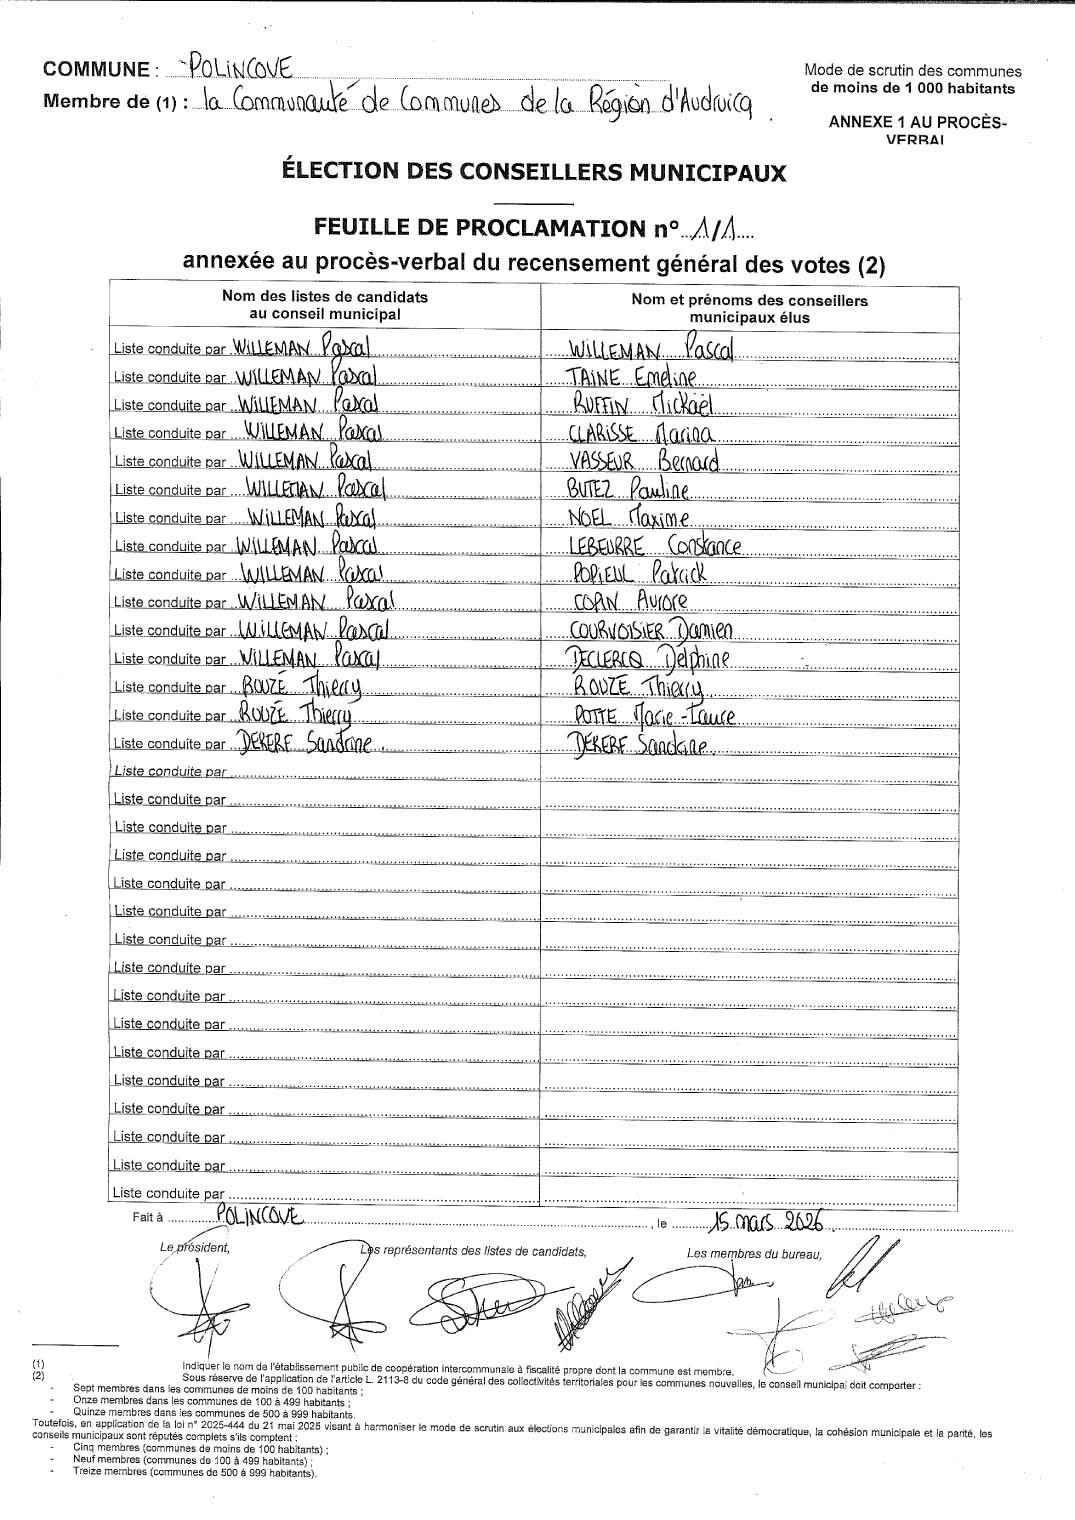 COMMUNE : POLINCOVE
Mode de scrutin des communes
de moins de 1 000 habitants
Membre de (1) : la Communauté de Communes de la Région d'Audruicq
ANNEXE 1 AU PROCÈS-
VERBAL
ÉLECTION DES CONSEILLERS MUNICIPAUX
FEUILLE DE PROCLAMATION n° 1/1
annexée au procès-verbal du recensement général des votes (2)
Nom des listes de candidats
au conseil municipal
Nom et prénoms des conseillers
municipaux élus
Liste conduite par WILLEMAN Pascal WILLEMAN Pascal
Liste conduite par WILLEMAN Pascal TAINE Emeline
Liste conduite par WILLEMAN Pascal RUFFIN Mickaël
Liste conduite par WILLEMAN Pascal CLARISSE Marina
Liste conduite par WILLEMAN Pascal VASSEUR Bernard
Liste conduite par WILLEMAN Pascal BUTEZ Pauline
Liste conduite par WILLEMAN Pascal NOEL Maxime
Liste conduite par WILLEMAN Pascal LEBEURRE Constance
Liste conduite par WILLEMAN Pascal POPIEUL Patrick
Liste conduite par WILLEMAN Pascal Aurore
Liste conduite par WILLEMAN Pascal COURVOISIER Damien
Liste conduite par WILLEMAN Pascal DECLERCQ Delphine
Liste conduite par ROUZÉ Thierry ROUZE Thierry
Liste conduite par ROUZÉ Thierry POTTE Marie-Laure
Liste conduite par DEKERE Sandrine DEKERE Sandrine
Liste conduite par
Liste conduite par
Liste conduite par
Liste conduite par
Liste conduite par
Liste conduite par
Liste conduite par
Liste conduite par
Liste conduite par
Liste conduite par
Liste conduite par
Liste conduite par
Liste conduite par
Liste conduite par
Liste conduite par
Liste conduite par
Fait à POLINCOVE, le 15 mars 2026
Le président, Les représentants des listes de candidats, Les membres du bureau,
(1) Indiquer le nom de l'établissement public de coopération intercommunale à fiscalité propre dont la commune est membre.
(2) Sous réserve de l'application de l'article L. 2113-8 du code général des collectivités territoriales pour les communes nouvelles, le conseil municipal doit comporter :
- Sept membres dans les communes de moins de 100 habitants ;
- Onze membres dans les communes de 100 à 499 habitants ;
- Quinze membres dans les communes de 500 à 999 habitants.
Toutefois, en application de la loi n° 2025-444 du 21 mai 2025 visant à harmoniser le mode de scrutin aux élections municipales afin de garantir la vitalité démocratique, la cohésion municipale et la parité, les
conseils municipaux sont réputés complets s'ils comptent :
- Cinq membres (communes de moins de 100 habitants) ;
- Neuf membres (communes de 100 à 499 habitants) ;
- Treize membres (communes de 500 à 999 habitants).